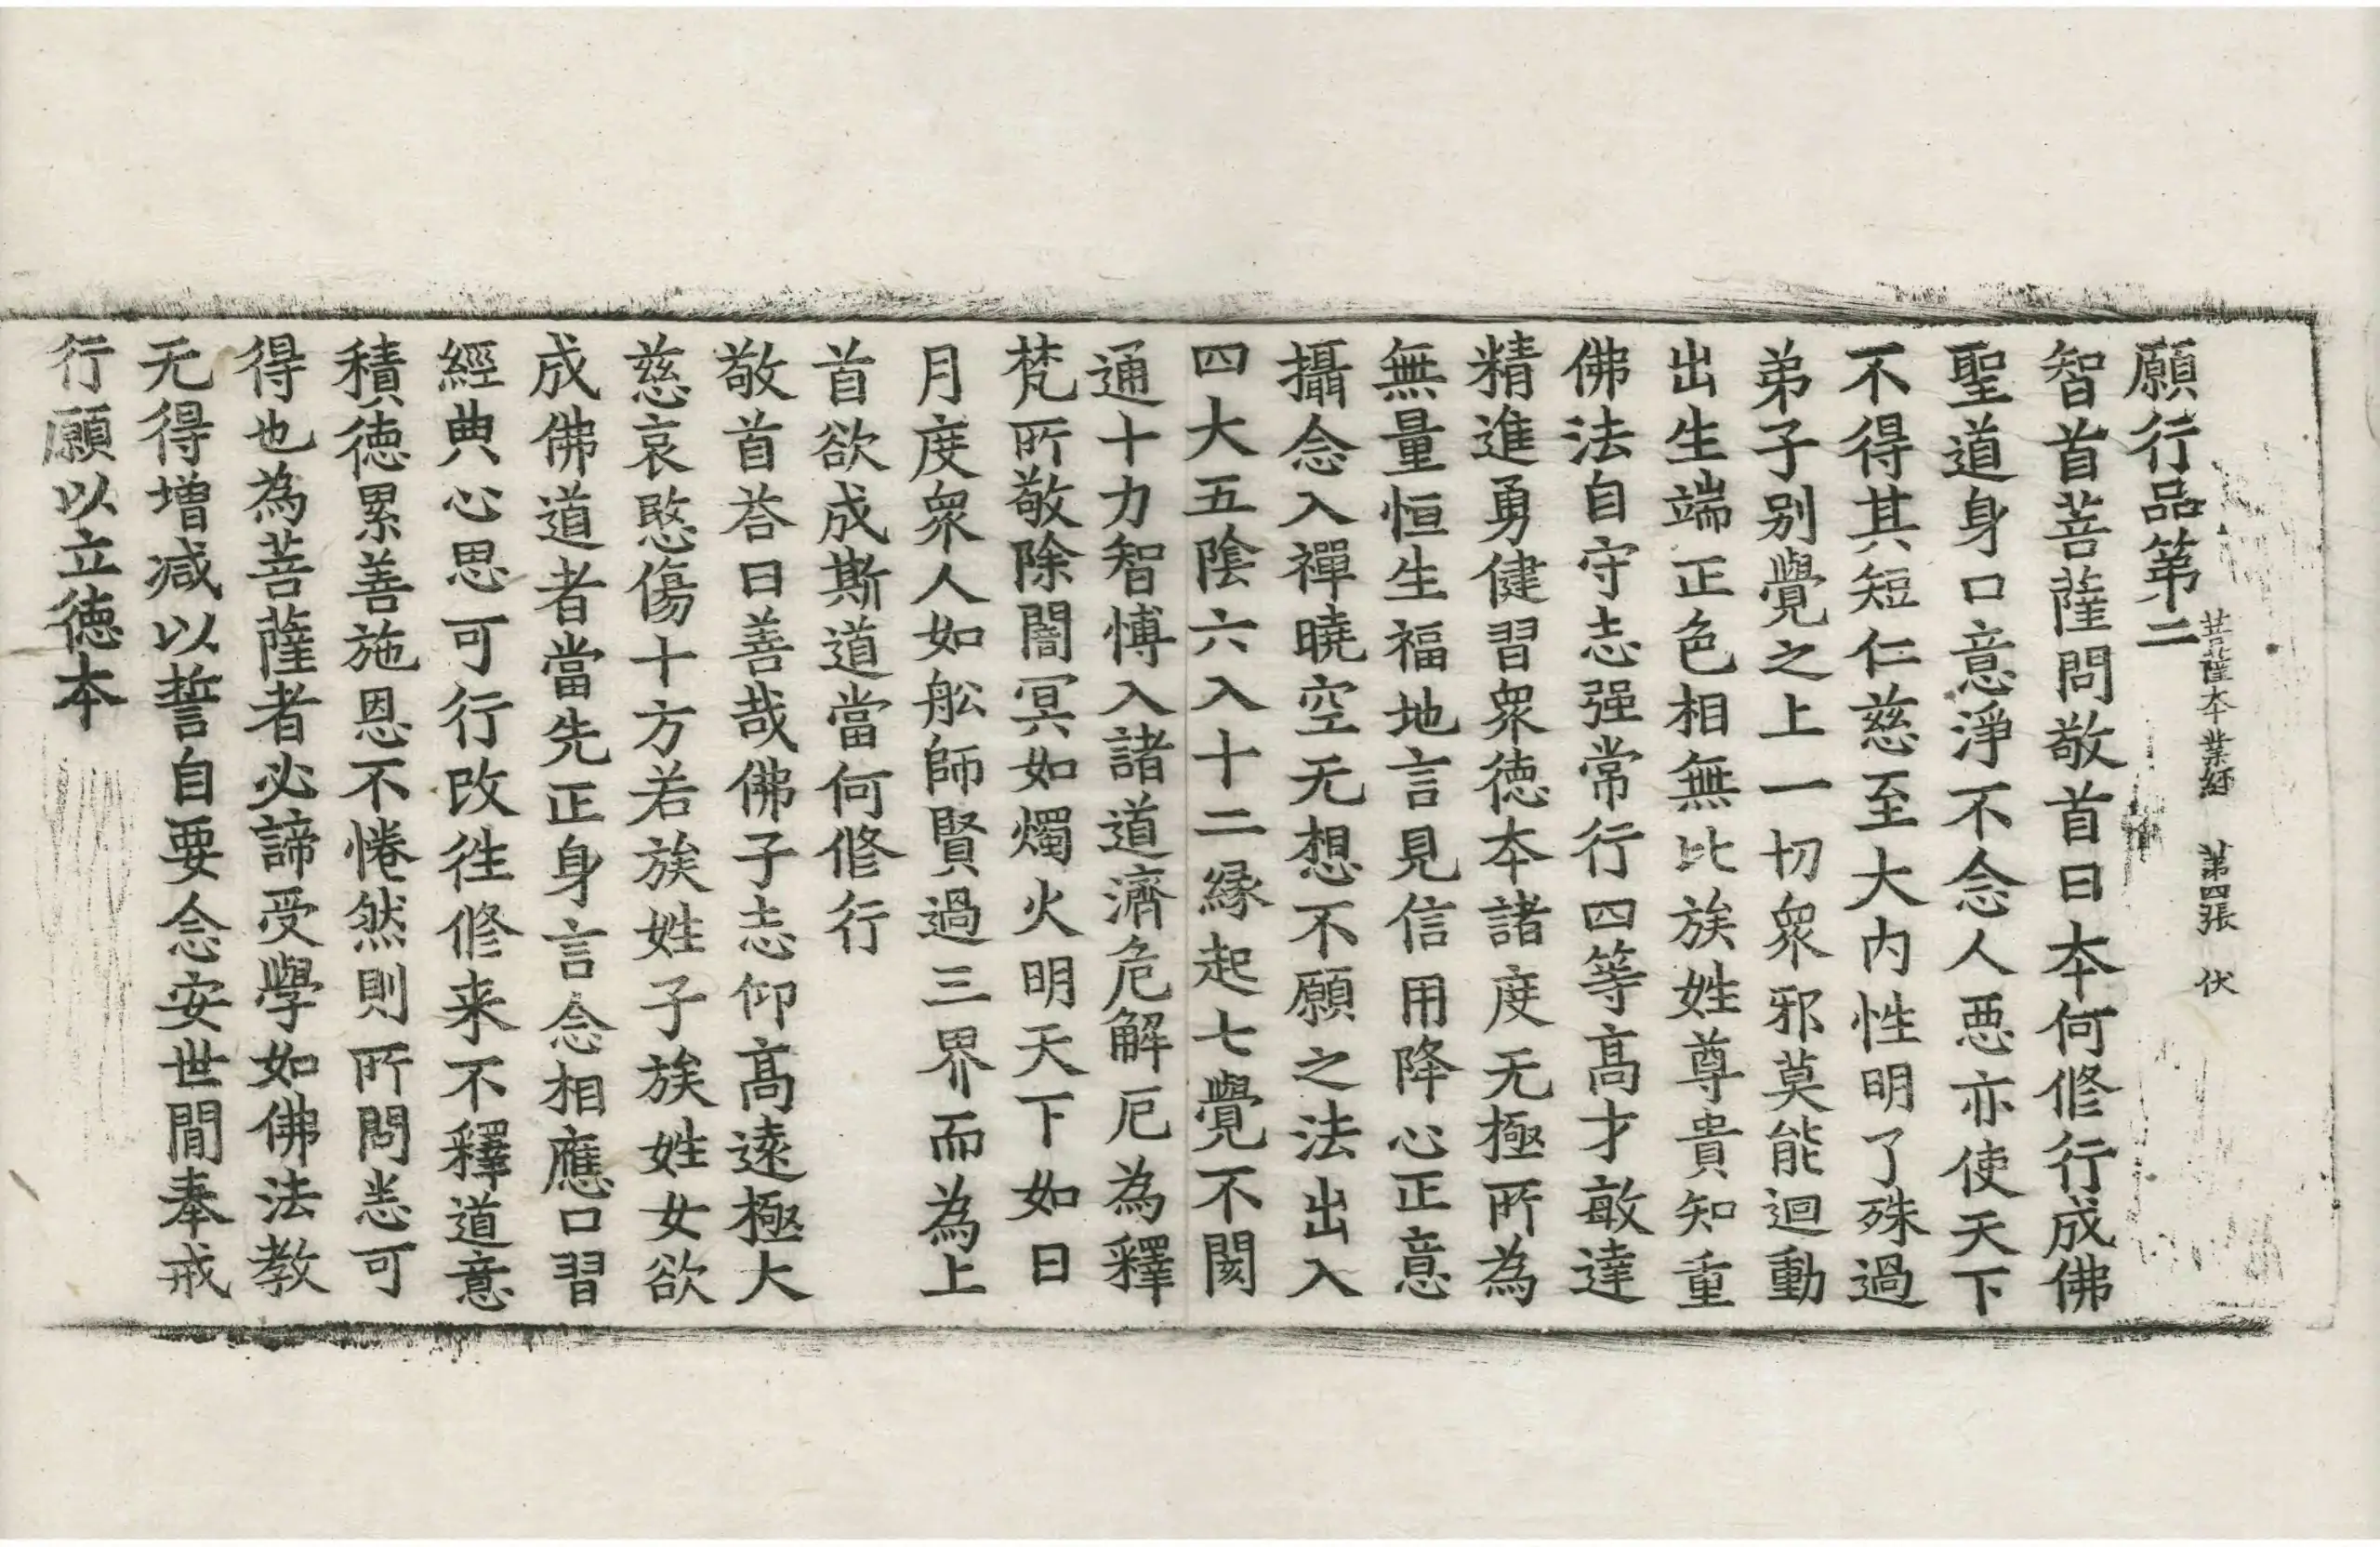 菩薩本業經 第四張 伏
願行品第二
智首菩薩問敬首曰本何修行成佛
聖道身口意淨不念人惡亦使天下
不得其短仁慈至大內性明了殊過
弟子別覺之上一切衆邪莫能迴動
出生端正色相無比族姓尊貴知重
佛法自守志强常行四等高才敏達
精進勇健習衆德本諸度无極所為
無量恒生福地言見信用降心正意
攝念入禪曉空无想不願之法出入
四大五陰六入十二緣起七覺不闕
通十力智博入諸道濟危解厄為釋
梵所敬除闇冥如燭火明天下如日
月度衆人如舩師賢過三界而為上
首欲成斯道當何修行
敬首荅曰善哉佛子志仰高遠極大
慈哀愍傷十方若族姓子族姓女欲
成佛道者當先正身言念相應口習
經典心思可行改往修来不釋道意
積德累善施恩不惓然則所問恙可
得也為菩薩者必諦受學如佛法教
无得增減以誓自要念安世間奉戒
行願以立德本